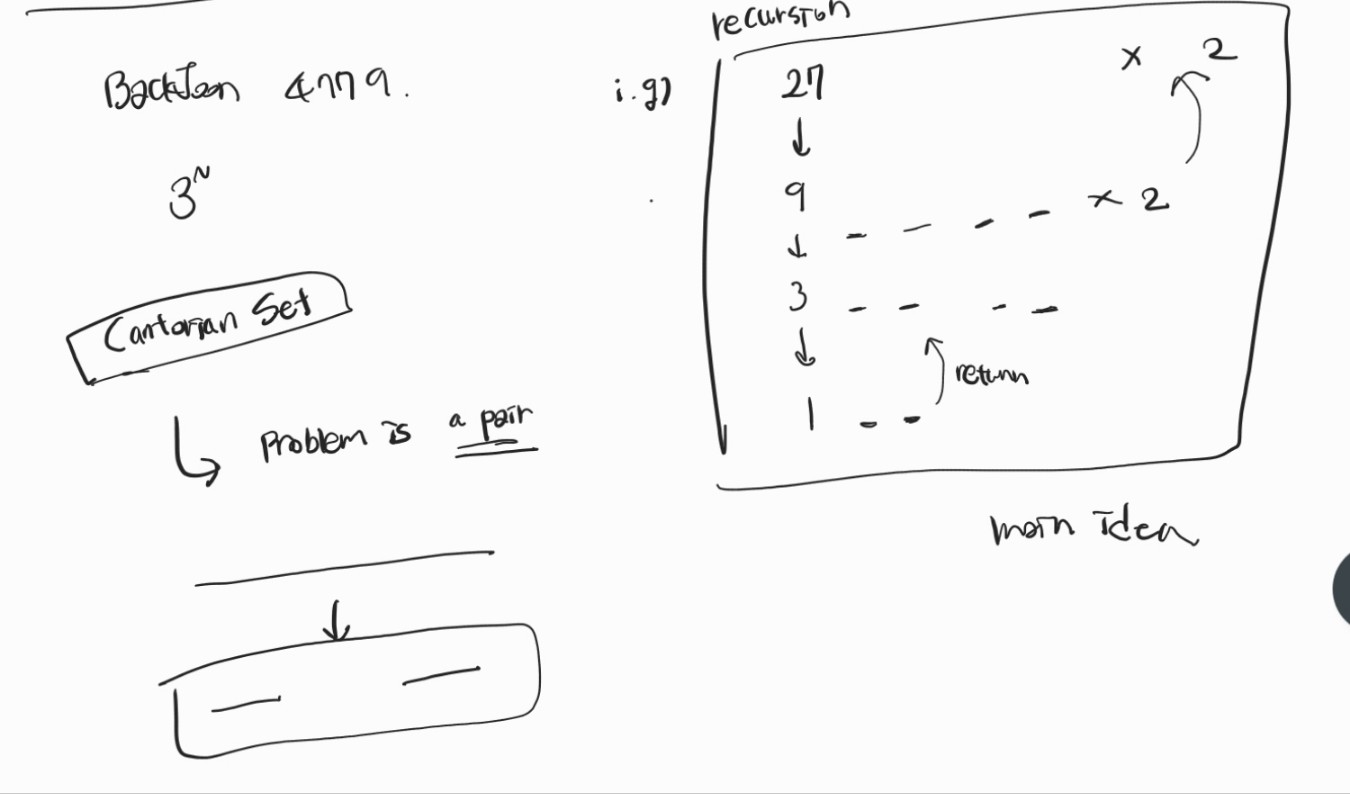 Backjoon 4779.
3^N
Cantorian Set
Problem is a pair
i.g)
recursion
27 x 2
↓
9 - - - - x 2
↓
3 - - - -
↓ return
1 - -
main idea